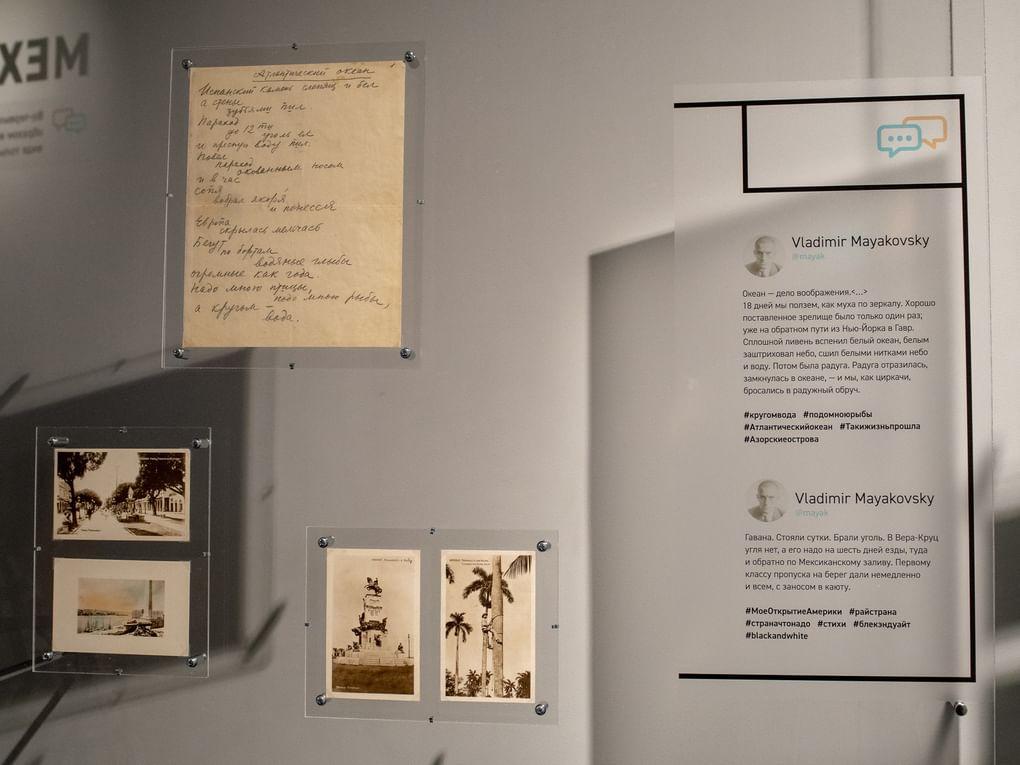 МЕХ
Атлантический океан
Испанский камень слепящ и бел
а стены
зубьями пил.
Пароход
до 12ти
уголь ел
и пресную воду пил.
Повел
пароход
окованным носом
и в час
сопя
вобрал якоря
и понесся
Европа
скрылась мельчась
Бегут
по бортам
водяные глыбы
огромные как года.
Надо мною птицы,
подо мною рыбы,
а кругом –
вода.
Vladimir Mayakovsky
@mayak
Океан — дело воображения.<...>
18 дней мы ползем, как муха по зеркалу. Хорошо
поставленное зрелище было только один раз;
уже на обратном пути из Нью-Йорка в Гавр.
Сплошной ливень вспенил белый океан, белым
заштриховал небо, сшил белыми нитками небо
и воду. Потом была радуга. Радуга отразилась,
замкнулась в океане, — и мы, как циркачи,
бросались в радужный обруч.
#кругомвода #подомноюрыбы
#Атлантическийокеан #Такижизньпрошла
#Азорскиеострова
Vladimir Mayakovsky
@mayak
Гавана. Стояли сутки. Брали уголь. В Вера-Круц
угля нет, а его надо на шесть дней езды, туда
и обратно по Мексиканскому заливу. Первому
классу пропуска на берег дали немедленно
и всем, с заносом в каюту.
#МоеОткрытиеАмерики #райстрана
#страначтонадо #стихи #блекэндуайт
#blackandwhite